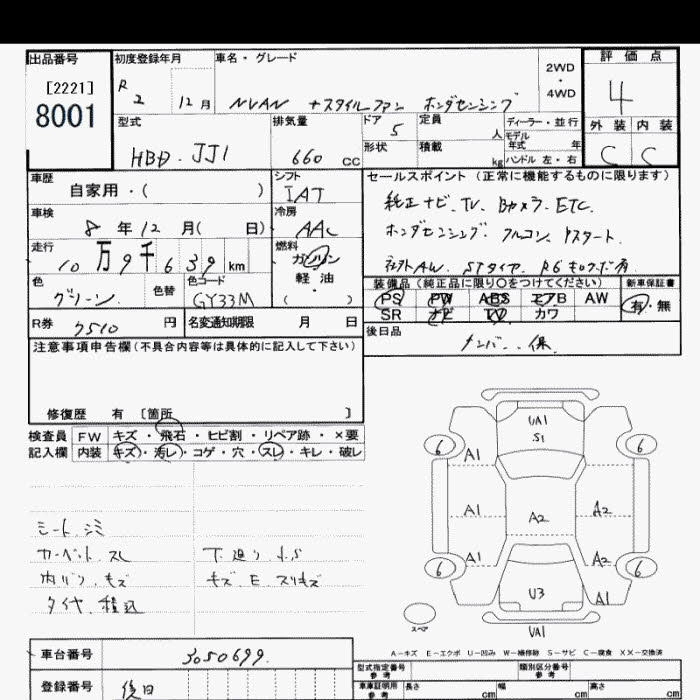 出品番号
[2221]
8001
初度登録年月
R2 12月
車名・グレード
NVAN +スタイルファン ホンダセンシング
2WD・4WD
評価点
4
外装 内装
C C
型式
HBD-JJ1
排気量
660 CC
ドア
5
形状
定員 人
積載 kg
ディーラー・並行
モデル年式 年
ハンドル 左・右
車歴
自家用・( )
シフト
IAT
セールスポイント (正常に機能するものに限ります)
純正ナビ.TV.Bカメラ.ETC.
ホンダセンシング フルコン.Pスタート.
社外AW. STタイヤ.
車検
8年12月( 日)
冷房
AAC
走行
10万9千639km
燃料
ガソリン
軽・油
( )
色
グリーン
色替
色コード
GY33M
装備品 (純正品に限り○をつけてください)
新車保証書
PS PW ABS エアB AW
SR ナビ TV カワ
有・無
R券
7510円
名変通知期限 月 日
後日品
ナンバー.保.
注意事項申告欄(不具合内容等は具体的に記入して下さい)
修復歴 有 [箇所 ]
検査員 FW キズ・飛石・ヒビ割・リペア跡・×要
記入欄 内装 キズ・汚レ・コゲ・穴・スレ・キレ・破レ
シート.シミ
カーペット.スレ 下廻り.小S
内バリ.キズ キズ.E.スリキズ
タイヤ.積込
UA1
S1
6 6
A1
A1 A2 A2
A1 A2
6 6
U3 A1
スペア
UA1
A-キズ E-エクボ U-凹み W-補修跡 S-サビ C-腐食 XX-交換済
車台番号
3050699
登録番号
後日
型式指定番号 参考
類別区分番号 参考
車庫証明用 参考
長さ cm 幅 cm 高さ cm